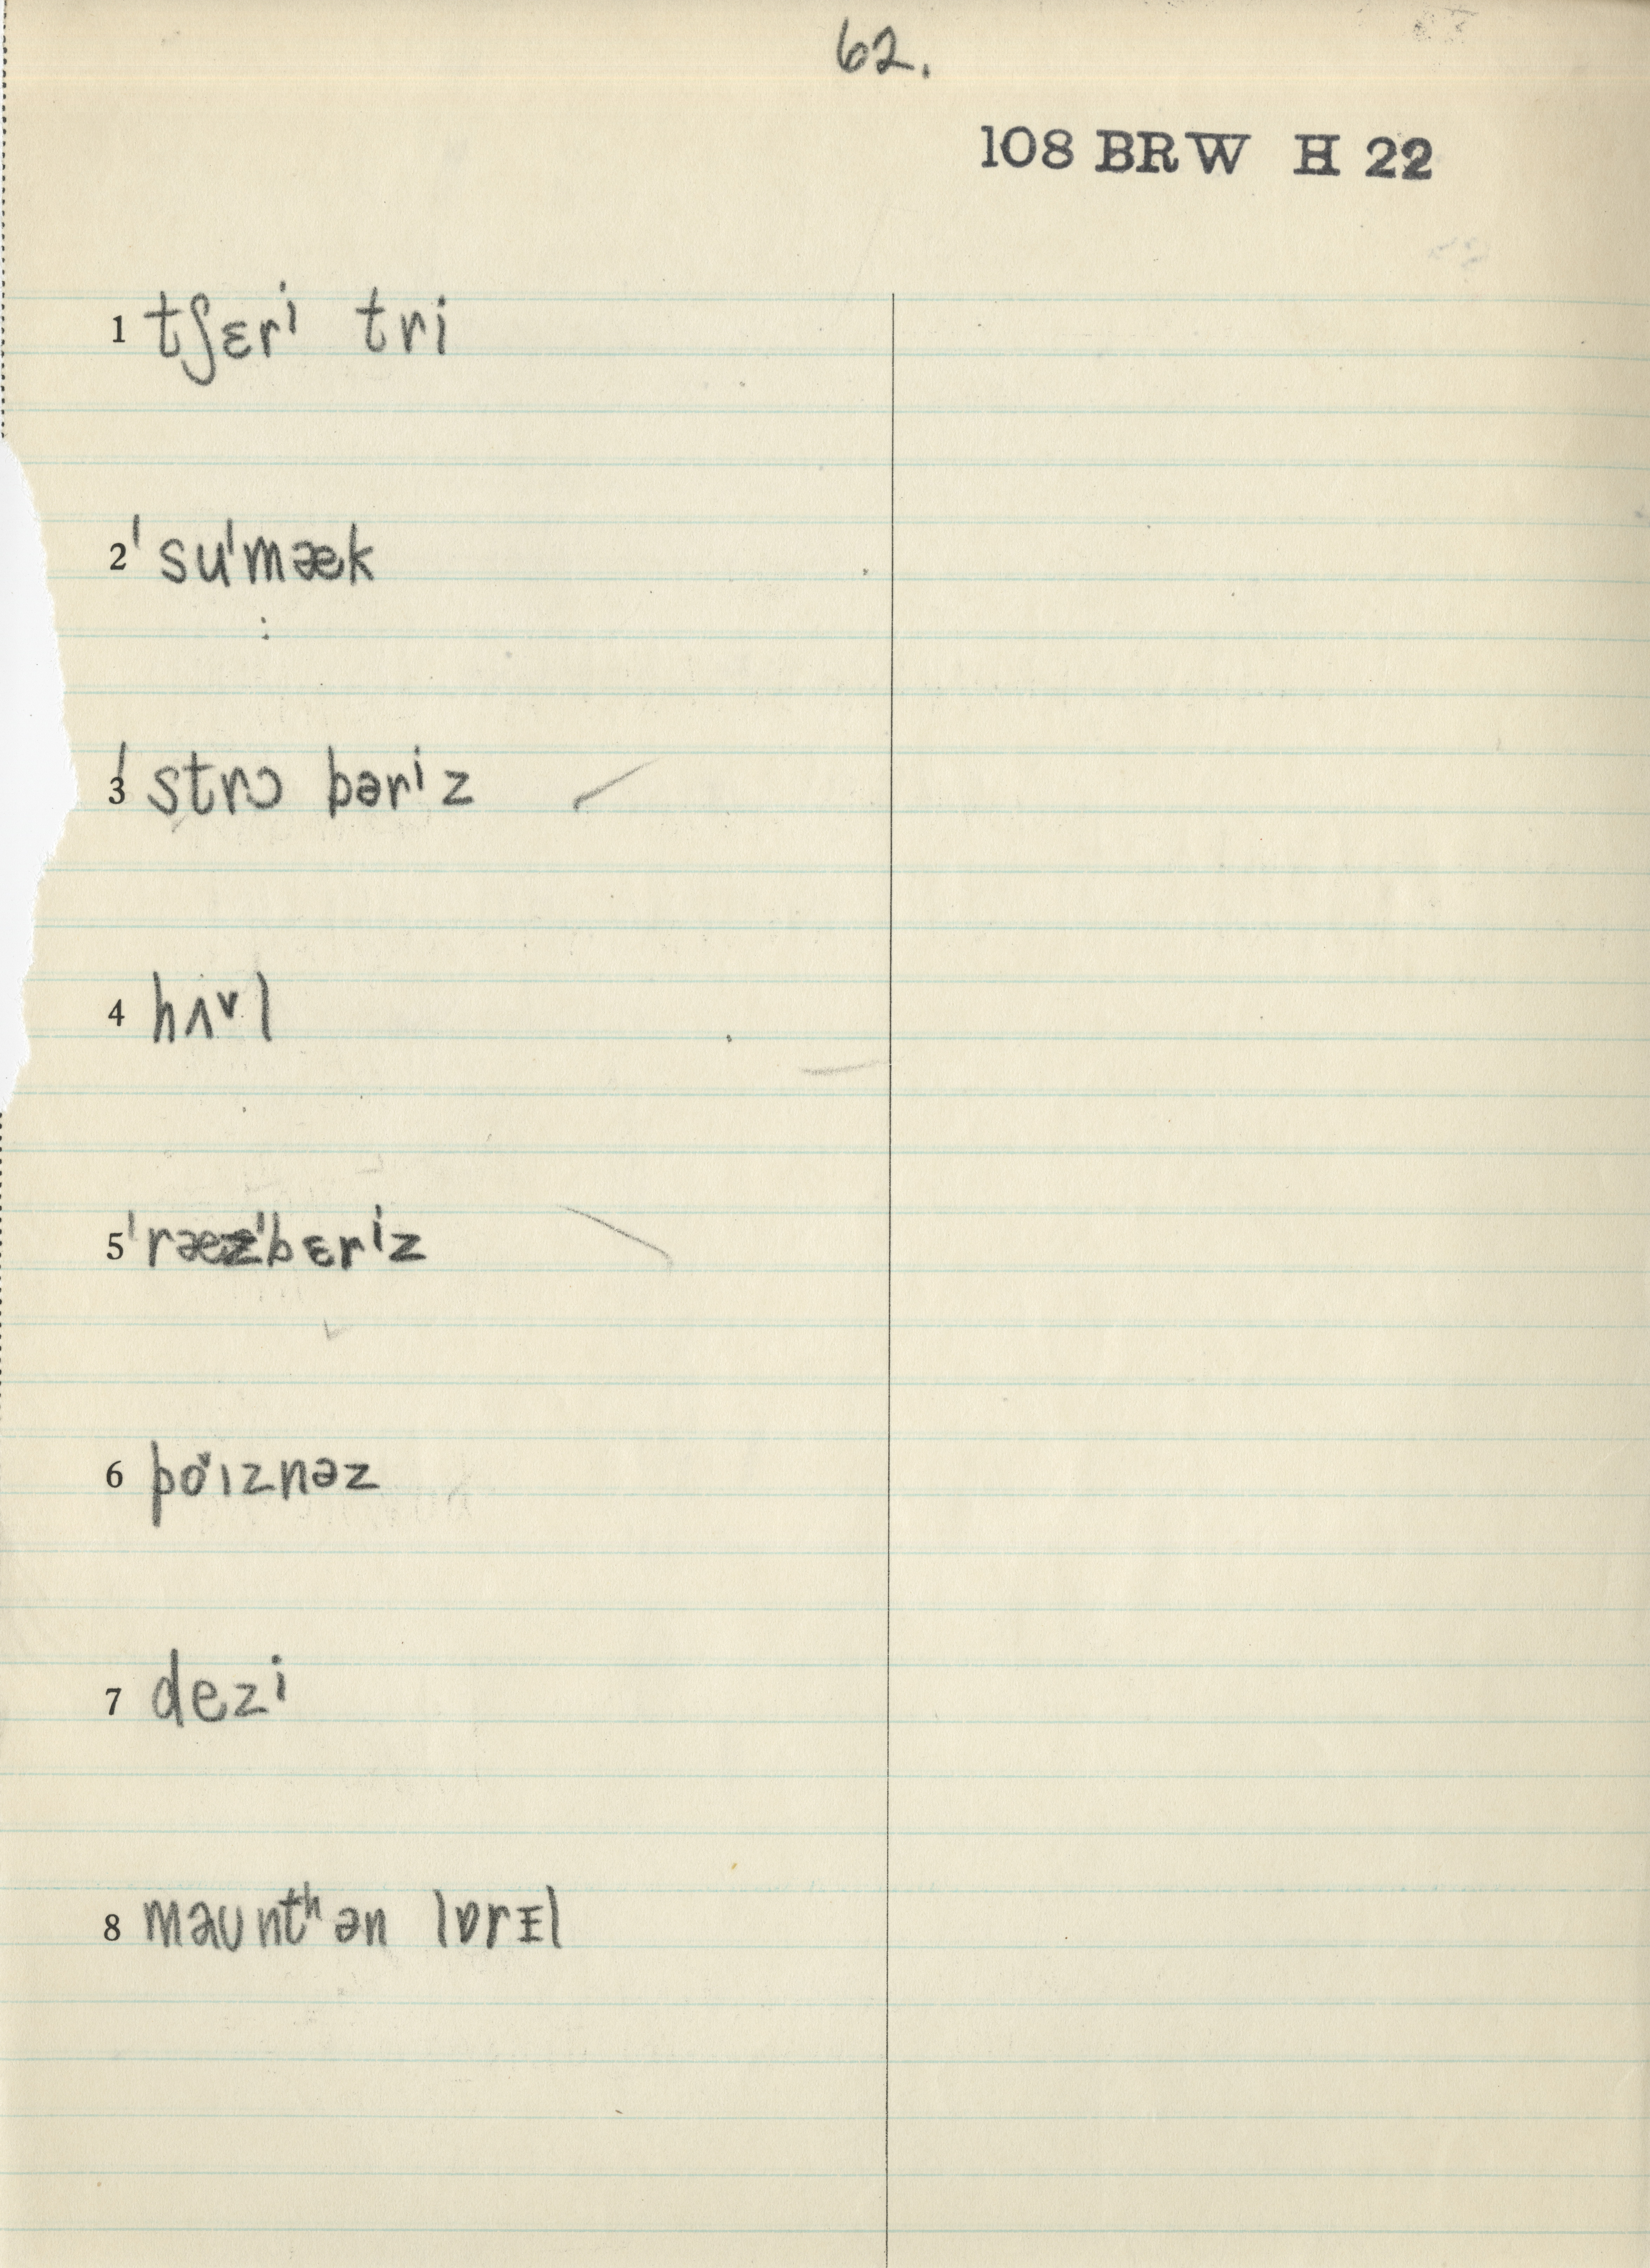 62.
108 BRW H 22
1 tʃɛrⁱ tri
2 ˈsuˈmæk
3 ˈstrɔ bərⁱz
4 hʌᵛl
5 ˈræzˈbɛrⁱz
6 po˅ɪznəz
7 dezⁱ
8 məʊntʰən lɒrᵻl